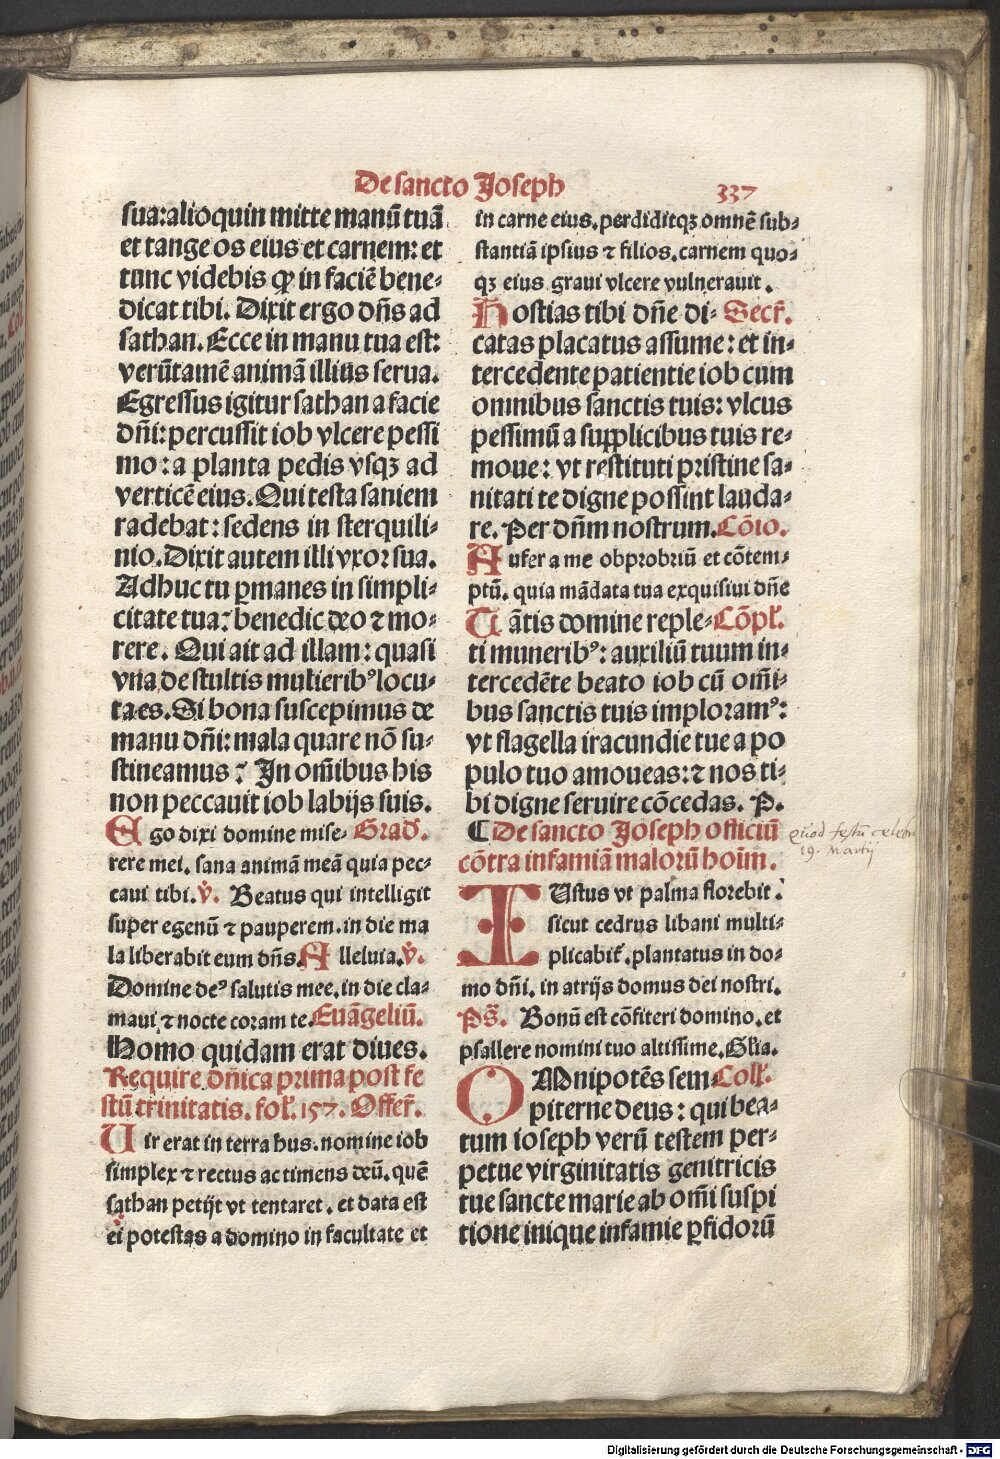 De sancto Joseph 337
sua: alioquin mitte manū tuā
et tange os eius et carnem: et
tunc videbis ꝙ in faciē bene⸗
dicat tibi. Dixit ergo dn̄s ad
sathan. Ecce in manu tua est:
verūtamē animā illius serua.
Egressus igitur sathan a facie
dn̄i: percussit iob vlcere pessi
mo: a planta pedis vsqꝫ ad
verticē eius. Qui testa saniem
radebat: sedens in sterquili⸗
nio. Dixit autem illi vxor sua.
Adhuc tu ꝑmanes in simpli⸗
citate tua: benedic deo ⁊ mo⸗
rere. Qui ait ad illam: quasi
vna de stultis mulieribꝰ locu⸗
ta es. Si bona suscepimus de
manu dn̄i: mala quare nō su⸗
stineamus? In om̄ibus his
non peccauit iob labijs suis.
Ego dixi domine mise⸗ Grad̄.
rere mei. sana animā meā quia pec⸗
caui tibi. v̄. Beatus qui intelligit
super egenū ⁊ pauperem. in die ma
la liberabit eum dn̄s. Alleluia. v̄.
Domine deꝰ salutis mee. in die cla⸗
maui ⁊ nocte coram te. Euāgeliū.
Homo quidam erat diues.
Require dn̄ica prima post fe
stū trinitatis. fol. 157. Offer̄.
Uir erat in terra hus. nomine iob
simplex ⁊ rectus ac timens deū. quē
sathan petijt vt tentaret. et data est
ei potestas a domino in facultate et
in carne eius. perdiditqꝫ omnē sub⸗
stantiā ipsius ⁊ filios. carnem quo⸗
qꝫ eius graui vlcere vulnerauit.
Hostias tibi dn̄e di⸗ Secr̄.
catas placatus assume: et in⸗
tercedente patientie iob cum
omnibus sanctis tuis: vlcus
pessimū a supplicibus tuis re⸗
moue: vt restituti pristine sa⸗
nitati te digne possint lauda⸗
re. Per dn̄m nostrum. Cōio.
Aufer a me obprobriū et cōtem⸗
ptū. quia mādata tua exquisiui dn̄e
Uātis domine reple⸗ Cōpl̄.
ti muneribꝰ: auxiliū tuum in⸗
tercedēte beato iob cū om̄i⸗
bus sanctis tuis imploramꝰ:
vt flagella iracundie tue a po
pulo tuo amoueas: ⁊ nos ti⸗
bi digne seruire cōcedas. P.
¶ De sancto Joseph officiū
cōtra infamiā malorū hoīm.
quod festū celebr
19. Martij
IUstus vt palma florebit.
sicut cedrus libani multi⸗
plicabit̄. plantatus in do⸗
mo dn̄i. in atrijs domus dei nostri.
Ps̄. Bonū est cōfiteri domino. et
psallere nomini tuo altissime. Gl̄ia.
OMnipotēs sem⸗ Coll̄.
piterne deus: qui bea⸗
tum ioseph verū testem per⸗
petue virginitatis genitricis
tue sancte marie ab om̄i suspi
tione inique infamie ꝑfidorū
Digitalisierung gefördert durch die Deutsche Forschungsgemeinschaft - DFG